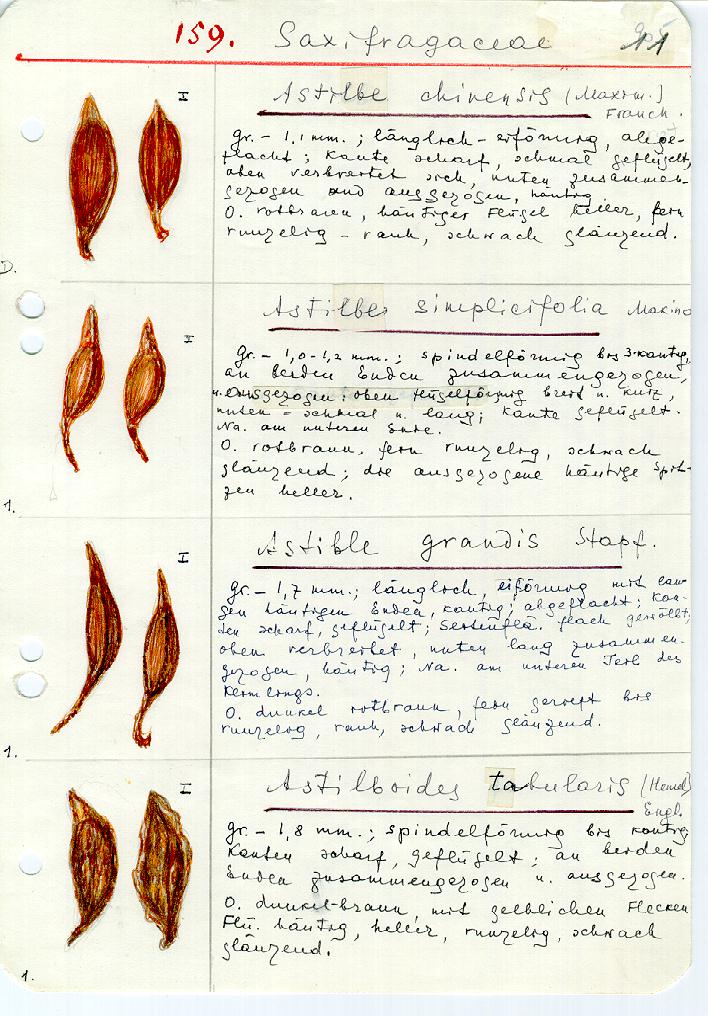 159. Saxifragaceae
I
Astilbe chinensis (Maxim.)
Franch.
gr. – 1,1 mm. ; länglich – eiförmig, abge-
flacht ; Kante scharf, schmal geflügelt,
oben verbreitet sich, unten zusammen-
gezogen und ausgezogen, häutig.
O. rotbraun, häutiger Flügel heller, fein
runzelig – rauh, schwach glänzend.
D.
I
Astilbe simplicifolia Makino
gr. – 1,0–1,2 mm. ; spindelförmig bis 3-kantig,
an beiden Enden zusammengezogen,
u. ausgezogen : oben flügelförmig breit u. kurz,
unten – schmal u. lang ; Kante geflügelt.
Na. am unteren Ende.
O. rotbraun, fein runzelig, schwach
glänzend ; die ausgezogene häutige Spit-
zen heller.
1.
I
Astible grandis Stapf.
gr. – 1,7 mm. ; länglich, eiförmig mit lan-
gen häutigen Enden, kantig ; abgeflacht ; Kan-
ten scharf, geflügelt ; Seitenflä. flach gewölbt,
oben verbreitet, unten lang zusammen-
gezogen, häutig ; Na. am unteren Teil des
Keimlings.
O. dunkel rotbraun, fein gereift bis
runzelig, rauh, schwach glänzend.
1.
I
Astilboides tabularis (Hemsl)
Engl.
gr. – 1,8 mm. ; spindelförmig bis kantig
Kanten scharf, geflügelt ; an beiden
Enden zusammengezogen u. ausgezogen.
O. dunkel-braun, mit gelblichen Flecken
Flü. häutig, heller, runzelig, schwach
glänzend.
1.